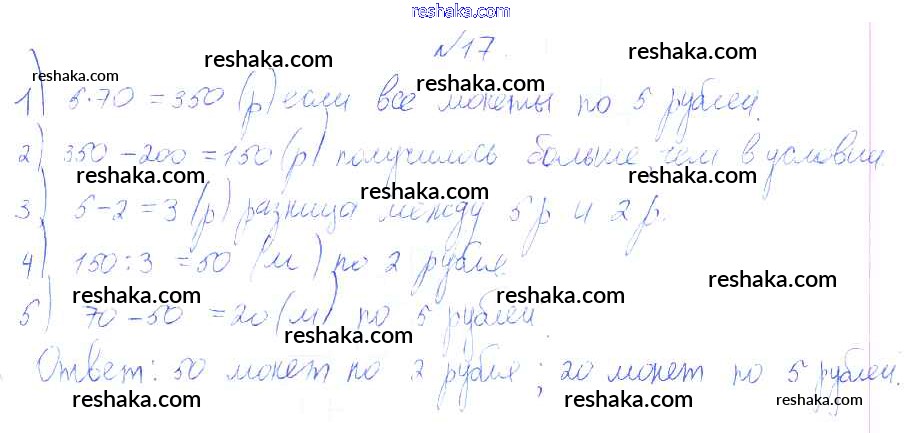 reshaka.com
№17.
reshaka.com reshaka.com
reshaka.com reshaka.com
1) 5·70=350 (р) если все монеты по 5 рублей.
reshaka.com
2) 350-200=150 (р) получилось больше, чем в условии
reshaka.com reshaka.com reshaka.com
3) 5-2=3 (р) разница между 5 р и 2 р.
reshaka.com
4) 150:3=50 (м) по 2 рубля
reshaka.com
reshaka.com reshaka.com
5) 70-50=20 (м) по 5 рублей
reshaka.com
Ответ: 50 монет по 2 рубля; 20 монет по 5 рублей.
reshaka.com reshaka.com reshaka.com